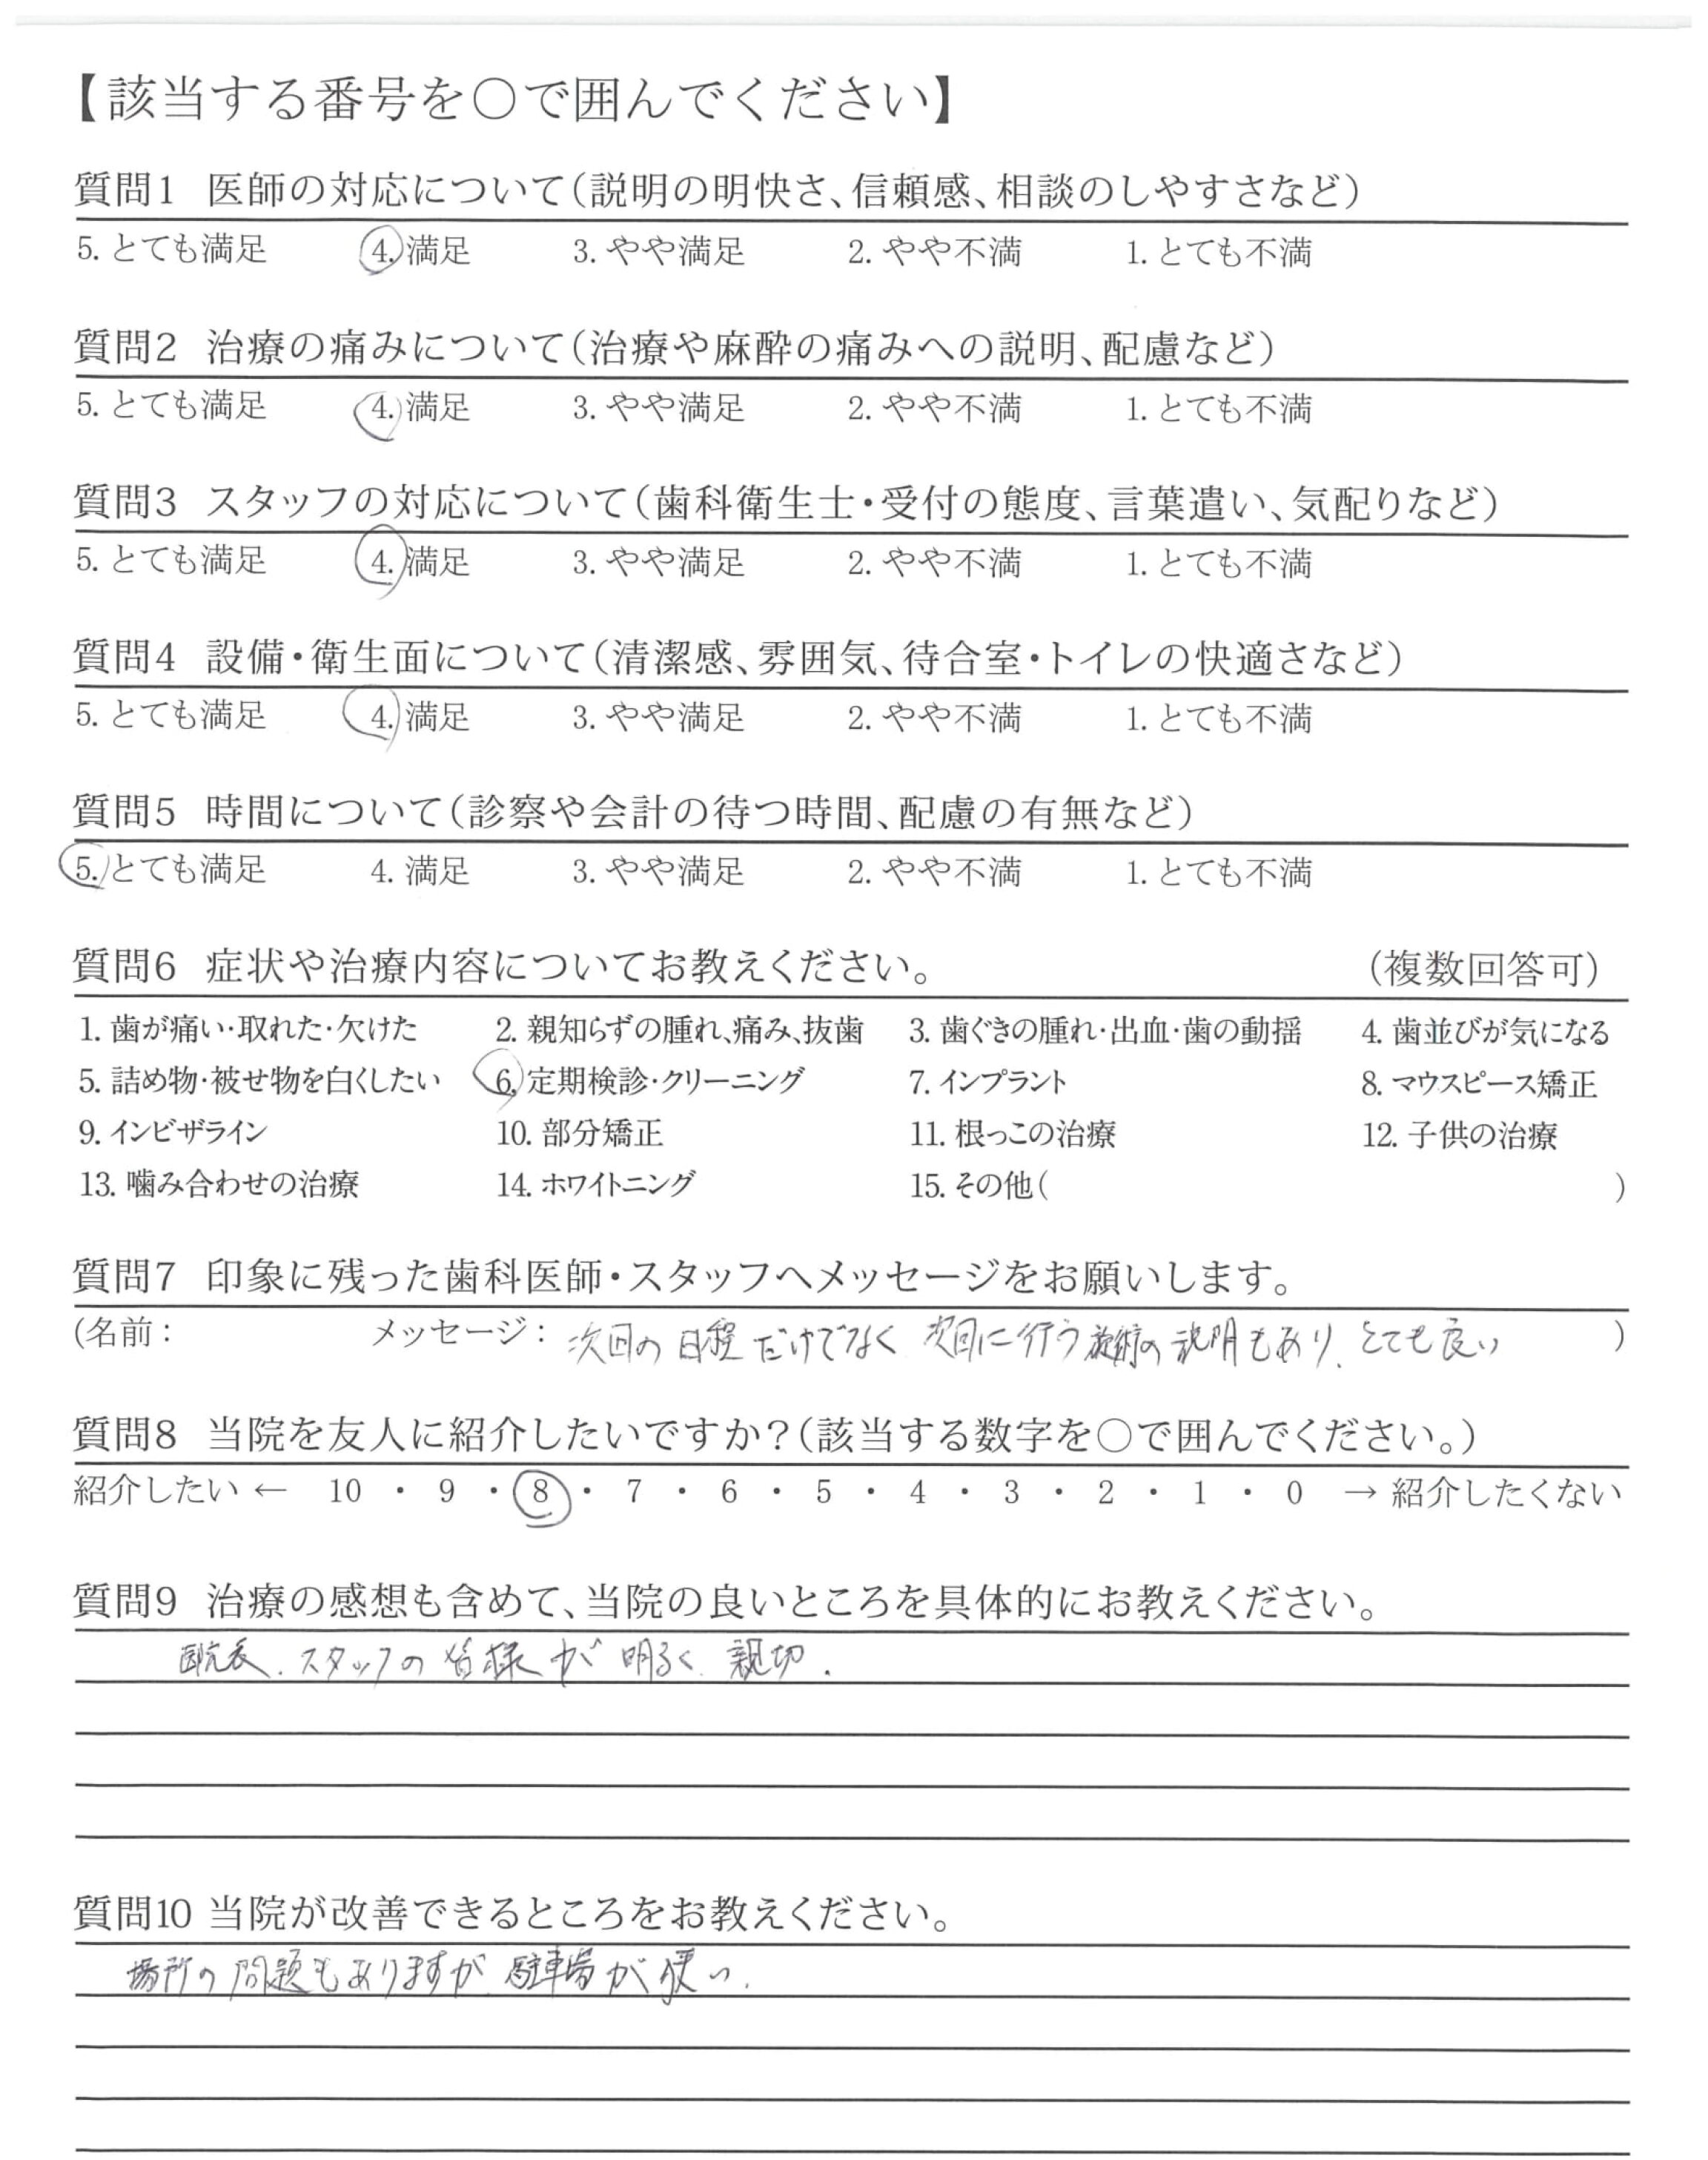 【該当する番号を○で囲んでください】
質問1 医師の対応について(説明の明快さ、信頼感、相談のしやすさなど)
5. とても満足 4. 満足 3. やや満足 2. やや不満 1. とても不満
質問2 治療の痛みについて(治療や麻酔の痛みへの説明、配慮など)
5. とても満足 4. 満足 3. やや満足 2. やや不満 1. とても不満
質問3 スタッフの対応について(歯科衛生士・受付の態度、言葉遣い、気配りなど)
5. とても満足 4. 満足 3. やや満足 2. やや不満 1. とても不満
質問4 設備・衛生面について(清潔感、雰囲気、待合室・トイレの快適さなど)
5. とても満足 4. 満足 3. やや満足 2. やや不満 1. とても不満
質問5 時間について(診察や会計の待つ時間、配慮の有無など)
5. とても満足 4. 満足 3. やや満足 2. やや不満 1. とても不満
質問6 症状や治療内容についてお教えください。 (複数回答可)
1. 歯が痛い・取れた・欠けた 2. 親知らずの腫れ、痛み、抜歯 3. 歯ぐきの腫れ・出血・歯の動揺 4. 歯並びが気になる
5. 詰め物・被せ物を白くしたい 6. 定期検診・クリーニング 7. インプラント 8. マウスピース矯正
9. インビザライン 10. 部分矯正 11. 根っこの治療 12. 子供の治療
13. 噛み合わせの治療 14. ホワイトニング 15. その他( )
質問7 印象に残った歯科医師・スタッフへメッセージをお願いします。
(名前: メッセージ: 次回の日程だけでなく 次回に行う施術の説明もあり、とても良い )
質問8 当院を友人に紹介したいですか?(該当する数字を○で囲んでください。)
紹介したい ← 10 ・ 9 ・ 8 ・ 7 ・ 6 ・ 5 ・ 4 ・ 3 ・ 2 ・ 1 ・ 0 → 紹介したくない
質問9 治療の感想も含めて、当院の良いところを具体的にお教えください。
医院長、スタッフの皆様が明るく、親切.
質問10 当院が改善できるところをお教えください。
場所の問題もありますが、駐車場が